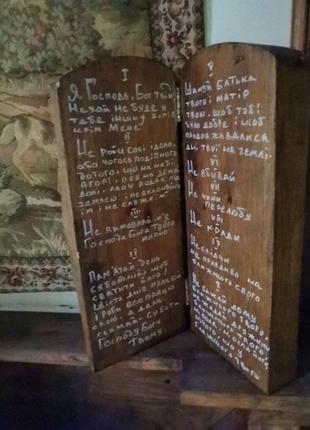 I
Я Господь, Бог Твій
Нехай не буде у
тебе інших Богів
крім Мене
II
Не роби собі ідола,
або чогось подібного
до того, що на небі
землею, і не вклоняйся
їм і не служи їм
III
Не вимовляй ім'я
Господа Бога Твого
марно
IV
Пам'ятай день
суботній, щоб
святити його.
Шість днів працюй
і роби всю працю
свою, а день
сьомий - субота
Господу Богу
Твоєму.
V
Шануй батька
твого і матір
твою, щоб тобі
було добре і щоб
продовжувались
дні твої на землі.
VI
Не вбивай
VII
Не чини
перелюбу
VIII
Не кради
IX
Не свідчи
неправдиво на
ближнього свого
X
Не бажай дому